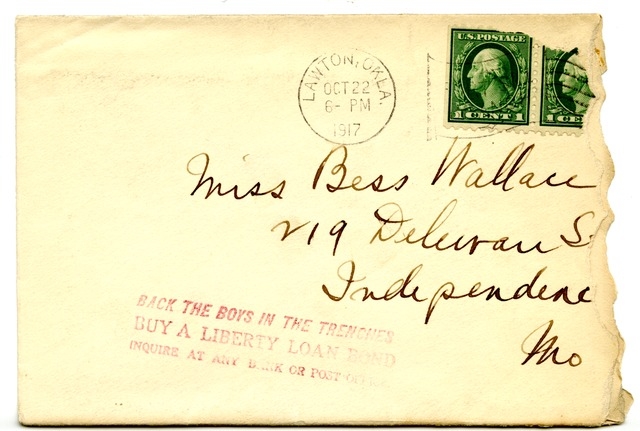 LAWTON, OKLA.
OCT 22
6- PM
1917
U.S. POSTAGE
1 CENT 1
1 CE
Miss Bess Wallace
219 Delewan S
Independenc
Mo
BACK THE BOYS IN THE TRENCHES
BUY A LIBERTY LOAN BOND
INQUIRE AT ANY BANK OR POST-OFFICE